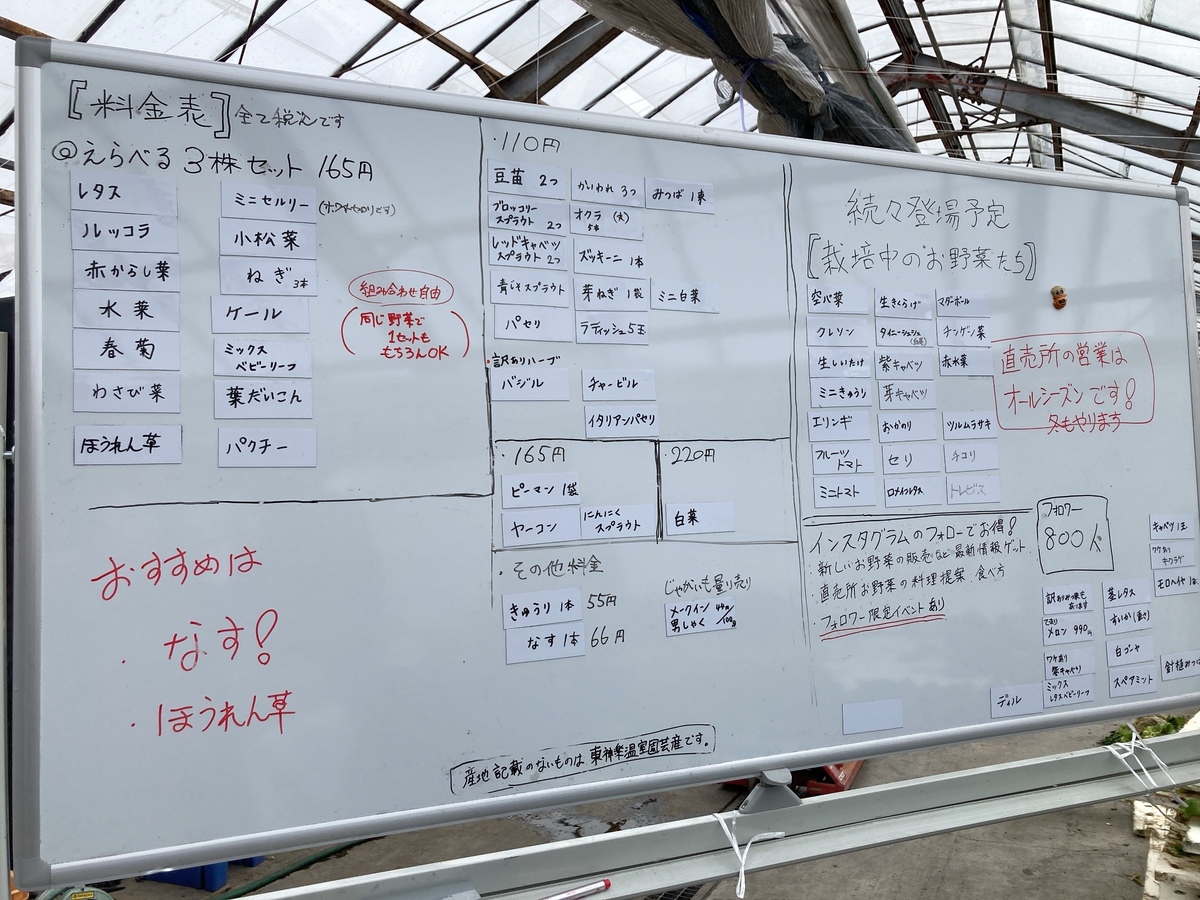 [料金表] 全て税込です
◎えらべる3株セット 165円
レタス
ルッコラ
赤からし菜
水菜
春菊
わさび菜
ほうれん草
ミニセルリー
小松菜
ねぎ 3本
ケール
ミックス
ベビーリーフ
葉だいこん
パクチー
組み合わせ自由
(同じ野菜で
1セットも
もちろんOK)
おすすめは
・なす!
・ほうれん草
・110円
豆苗 2つ
かいわれ 3つ
みつば 1束
ブロッコリー
スプラウト 2つ
オクラ (大)
5本
レッドキャベツ
スプラウト 2つ
ズッキーニ 1本
青じそスプラウト
芽ねぎ 1袋
ミニ白菜
パセリ
ラディッシュ 5玉
・訳ありハーブ
バジル
チャービル
イタリアンパセリ
・165円
ピーマン 1袋
ヤーコン
にんにく
スプラウト
・220円
白菜
・その他料金
きゅうり 1本 55円
なす 1本 66円
じゃがいも量り売り
メークイン
男しゃく
44円/100g
産地記載のないものは 東神楽温室園芸産です。
続々登場予定
[栽培中のお野菜たち]
空心菜
生きくらげ
マダーボール
クレソン
タイニーシュシュ
(白菜)
チンゲン菜
生しいたけ
紫キャベツ
赤水菜
ミニきゅうり
芽キャベツ
エリンギ
おかのり
ツルムラサキ
フルーツ
トマト
セリ
チコリ
ミニトマト
ロメインレタス
トレビス
直売所の営業は
オールシーズンです!
冬もやります
インスタグラムのフォローでお得!
・新しいお野菜の販売など最新情報ゲット
・直売所お野菜の料理提案、食べ方
・フォロワー限定イベントあり
フォロワー
800人
キャベツ 1玉
ワケあり
キクラゲ
モロヘイヤ
茎レタス
メロン 990円
すいか
ワケあり
紫キャベツ
白ゴーヤ
ミックス
レタスベビーリーフ
スペアミント
ディル